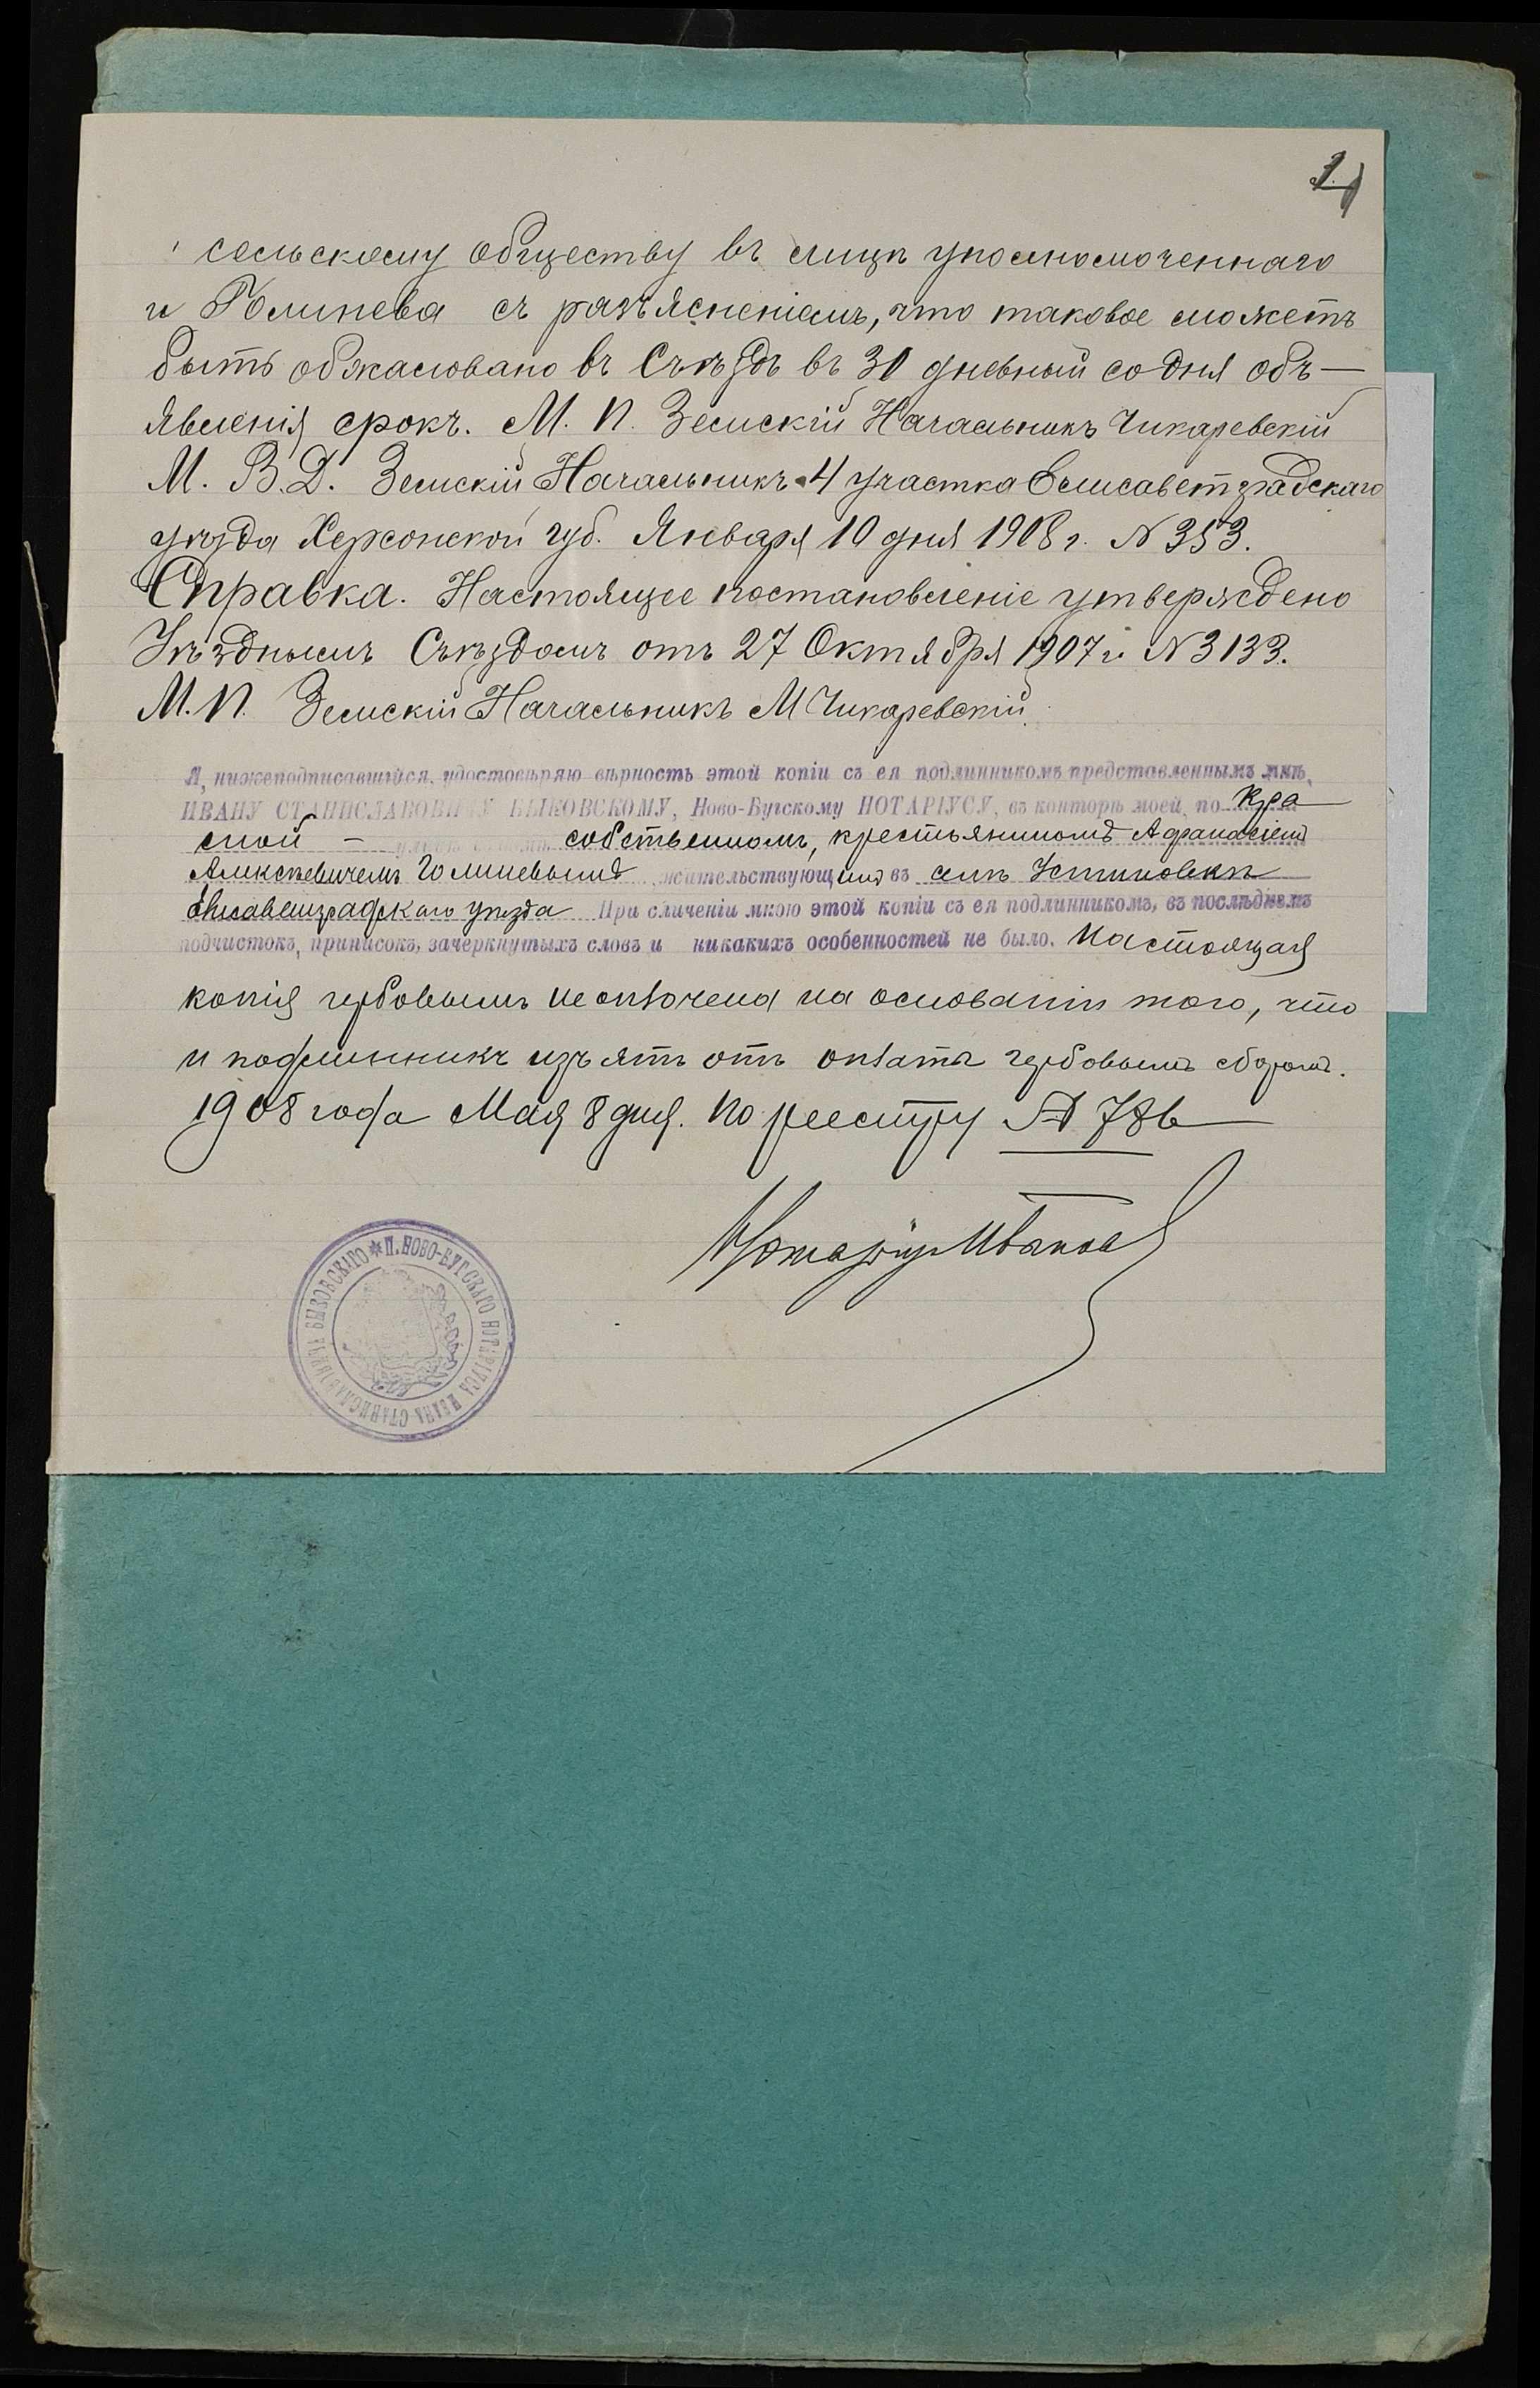 сельскому обществу въ лицѣ уполномоченнаго
и Голинева съ разъясненіемъ, что таковое можетъ
быть обжаловано въ Съѣздъ въ 30 дневный со дня объ—
явленія срокъ. М. П. Земскій Начальникъ Чикаревскій
М. В. Д. Земскій Начальникъ 4 участка Елисаветградскаго
уѣзда Херсонской губ. Января 10 дня 1908 г. № 353.
Справка. Настоящее постановленіе утверждено
Уѣзднымъ Съѣздомъ отъ 27 Октября 1907 г. № 3133.
М. П. Земскій Начальникъ М Чикаревскій.
Я, нижеподписавшійся, удостовѣряю вѣрность этой копіи съ ея подлинникомъ представленнымъ мнѣ,
ИВАНУ СТАНИСЛАВОВИЧУ БЫКОВСКОМУ, Ново-Бугскому НОТАРІУСУ, въ конторѣ моей, по Кра
сной — собственномъ, крестьяниномъ Афанасіемъ
Алексѣевичемъ Голиневымъ жительствующимъ въ селѣ Устиновкѣ
Елисаветградскаго уѣзда При сличеніи мною этой копіи съ ея подлинникомъ, въ послѣднемъ
подчистокъ, приписокъ, зачеркнутыхъ словъ и никакихъ особенностей не было. Настоящая
копія гербовымъ не оплочена на основаніи того, что
и подлинникъ изъятъ отъ оплаты гербовымъ сборомъ.
1908 года Мая 8 дня. По реестру № 786
Нотаріусъ
* П. НОВО-БУГСКАГО НОТАРІУСА ИВАНА СТАНИСЛАВОВИЧА БЫКОВСКАГО